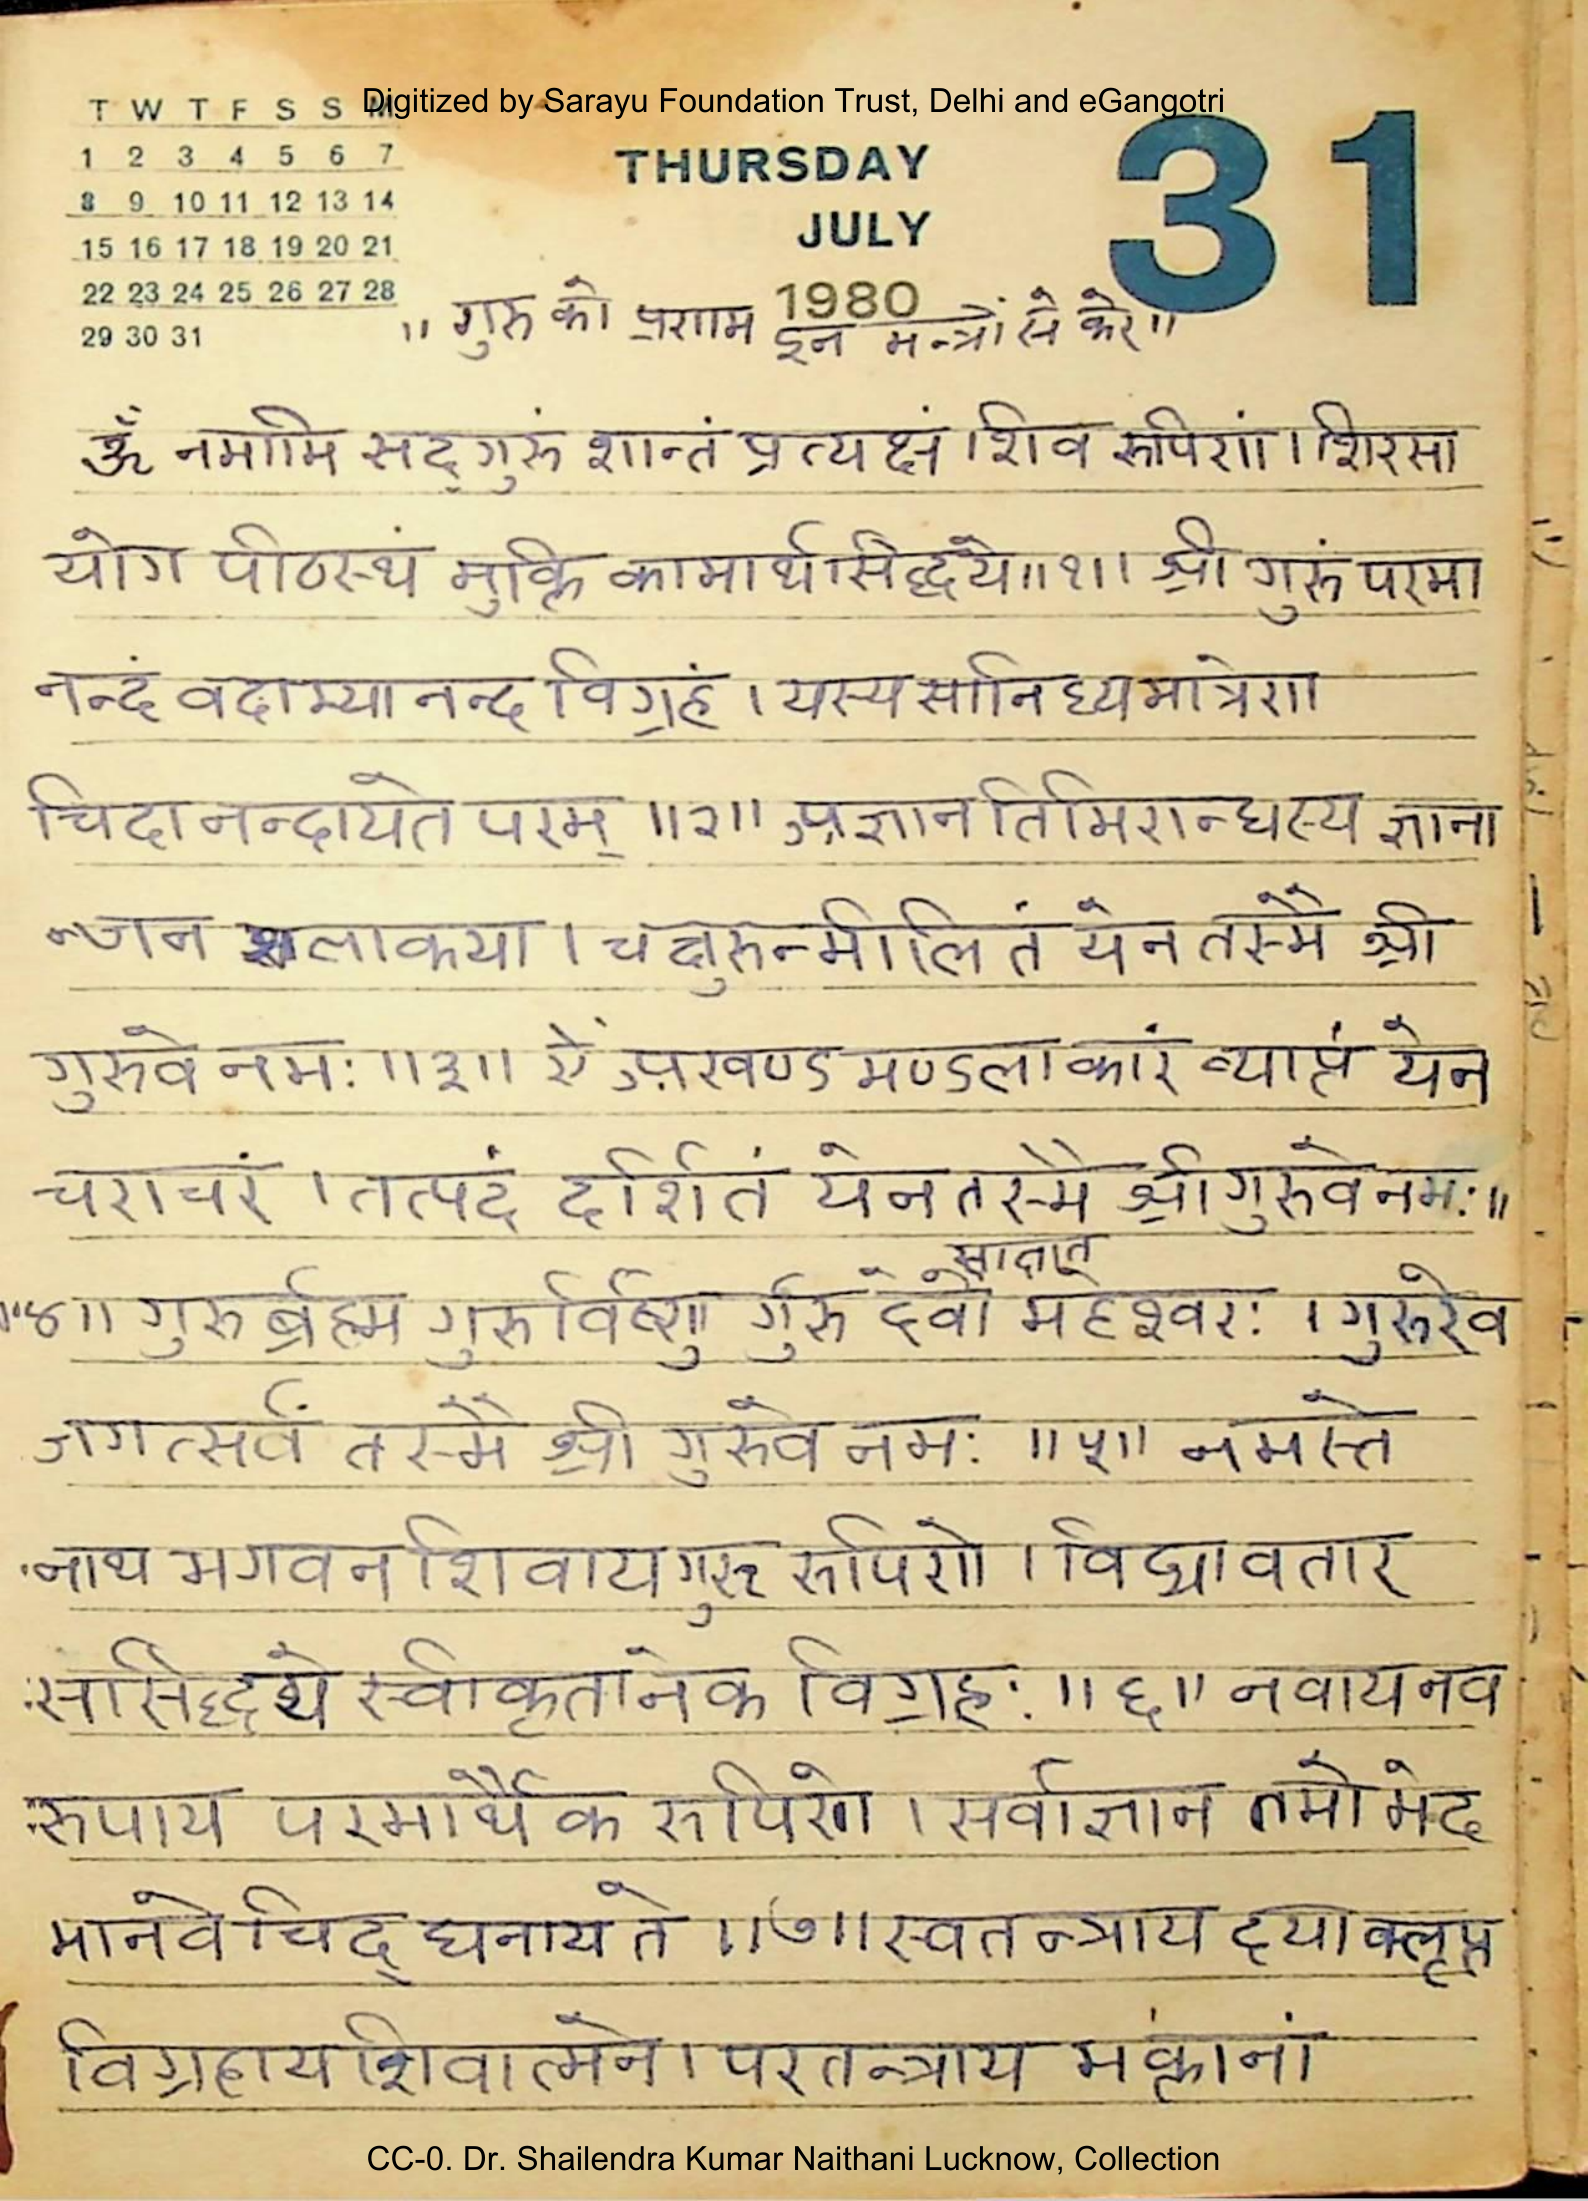 Digitized by Sarayu Foundation Trust, Delhi and eGangotri
T W T F S S M
1 2 3 4 5 6 7
8 9 10 11 12 13 14
15 16 17 18 19 20 21
22 23 24 25 26 27 28
29 30 31
THURSDAY
JULY
1980
31
" गुरु को प्रणाम इन मन्त्रों से करे "
ॐ नमामि सद्गुरुं शान्तं प्रत्यक्षं शिव रूपिणं । शिरसा
योग पीठस्थं मुक्ति कामार्थ सिद्धये ॥१॥ श्री गुरुं परमा
नन्दं वदाम्यानन्द विग्रहं । यस्य सानिध्यमात्रेण
चिदानन्दायते परम् ॥२॥ अज्ञान तिमिरान्धस्य ज्ञाना
न्जन शलाकया । चक्षुरुन्मीलितं येन तस्मै श्री
गुरुवे नमः ॥३॥ ऐं अखण्ड मण्डलाकारं व्याप्तं येन
चराचरं । तत्पदं दर्शितं येन तस्मै श्री गुरुवे नमः ॥
साक्षात
॥४॥ गुरुर्ब्रह्म गुरुर्विष्णु र्गुरु देवो महेश्वरः । गुरुरेव
जगत्सर्वं तस्मै श्री गुरुवे नमः ॥५॥ नमस्ते
नाथ भगवन शिवाय गुरु रूपिणे । विद्यावतार
संसिद्धये स्वीकृतानेक विग्रहः ॥६॥ नवाय नव
रूपाय परमार्थैक रूपिणे । सर्वाज्ञान तमो भेद
भानवे चिद् घनाय ते ॥७॥ स्वतन्त्राय दया क्लृप्त
विग्रहाय शिवात्मने । परतन्त्राय भक्तानां
CC-0. Dr. Shailendra Kumar Naithani Lucknow, Collection